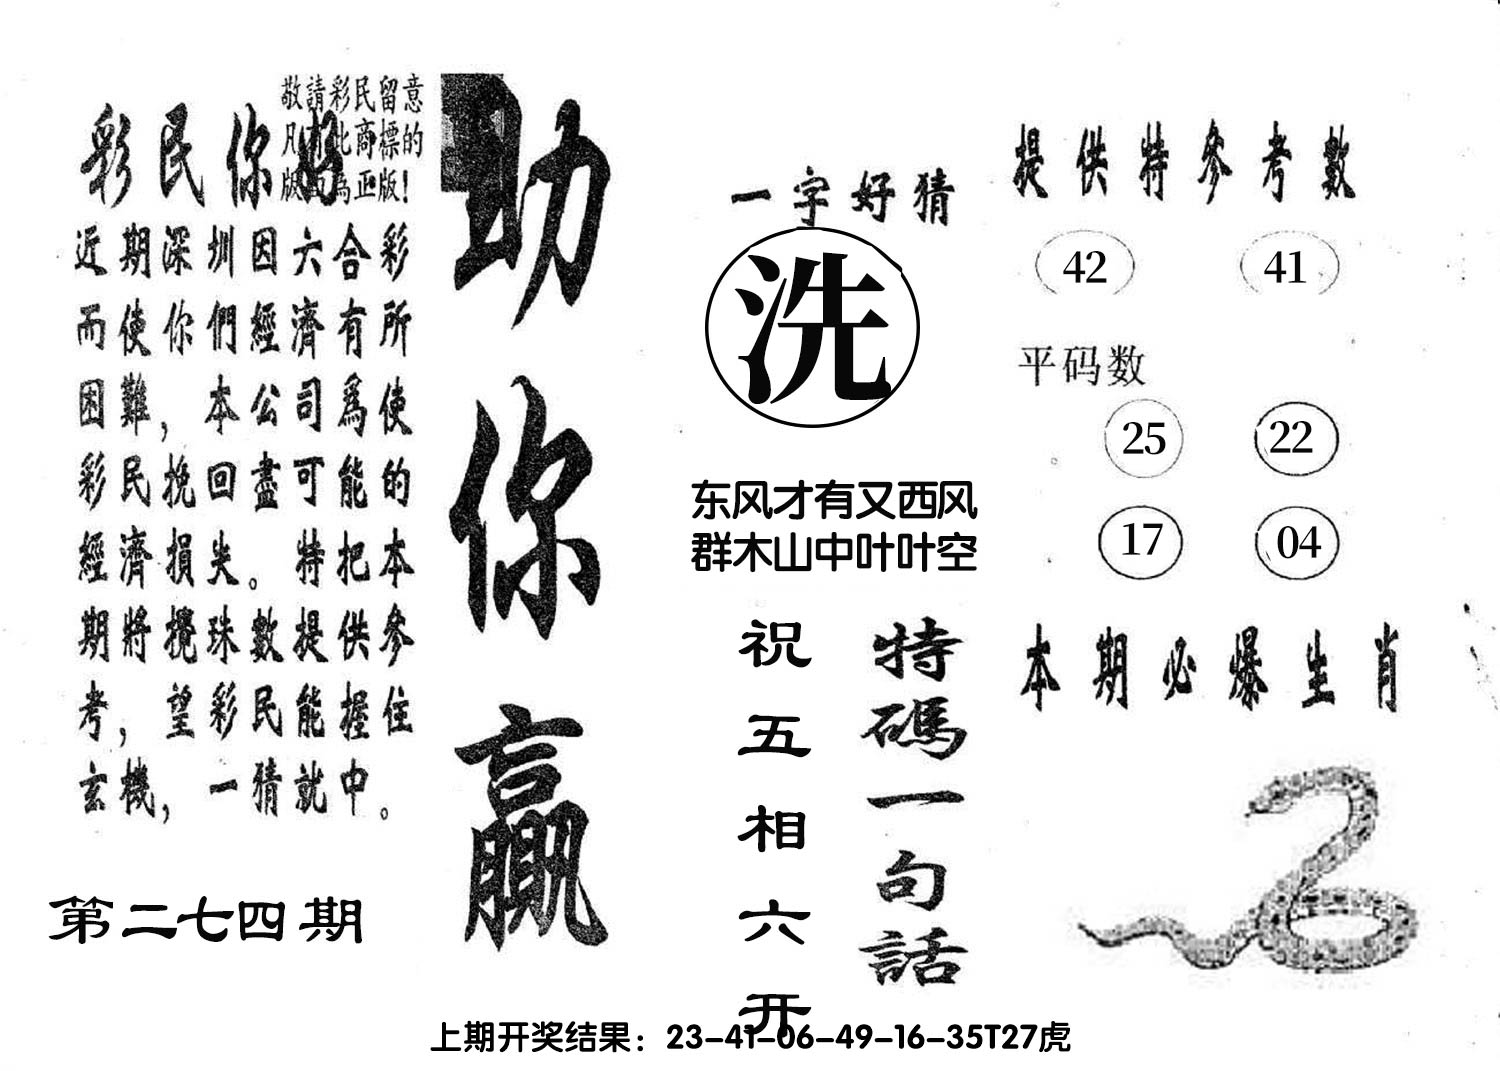 敬請彩民留意
凡有此商標的
版面為正版！
彩民你好
近期深圳因六合彩
而使你們經濟有所
困難，本公司爲使
彩民挽回盡可能的
經濟損失。特把本
期將攪珠數提供參
考，望彩民能握住
玄機，一猜就中。
第二七四期
助你贏
一字好猜
洗
东风才有又西风
群木山中叶叶空
特碼一句話
祝五相六开
提供特參考數
42 41
平码数
25 22
17 04
本期必爆生肖
上期开奖结果：23-41-06-49-16-35T27虎